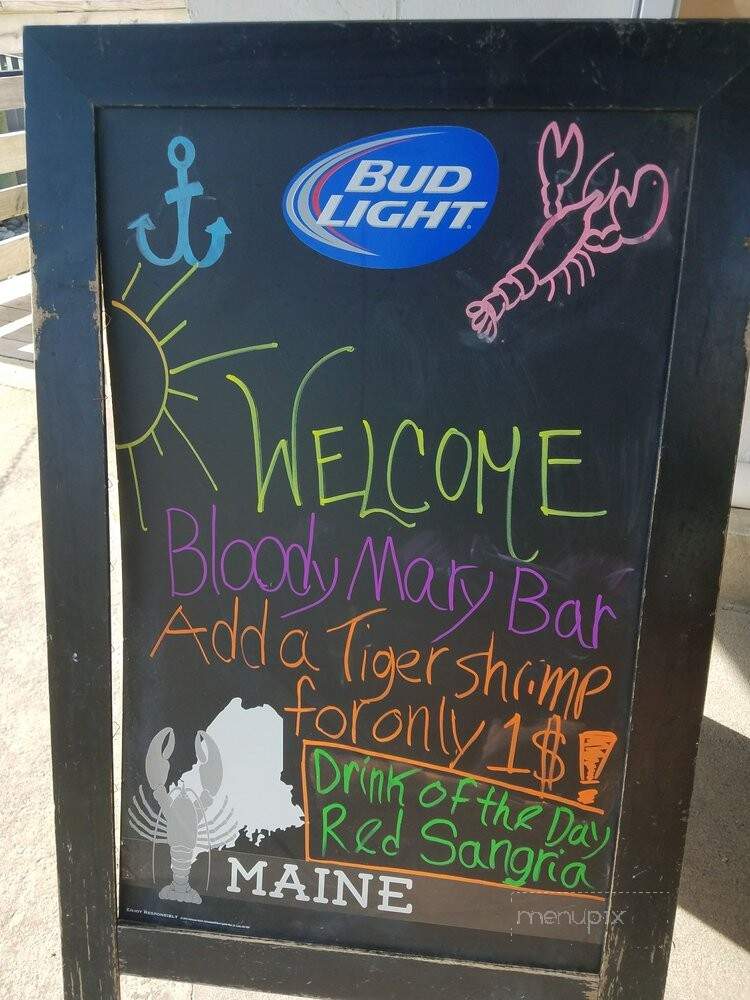 BUD
LIGHT
WELCOME
Bloody Mary Bar
Add a Tiger shrimp
for only 1$!
Drink of the Day
Red Sangria
MAINE
ENJOY RESPONSIBLY
menupix